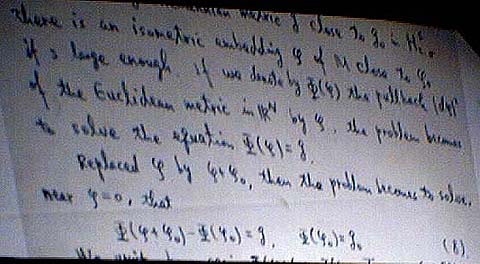 Riemannian metric g close to g₀ in Hˢ,
there is an isometric embedding φ of M close to φ₀
if s large enough. if we denote by Φ(φ) the pullback |dφ|²
of the Euclidean metric in ℝᴺ by φ, the problem becomes
to solve the equation Φ(φ) = g.
Replaced φ by φ+φ₀, then the problem becomes to solve,
near φ=0, that
Φ(φ+φ₀) - Φ(φ₀) = g, Φ(φ₀) = g₀ (8).